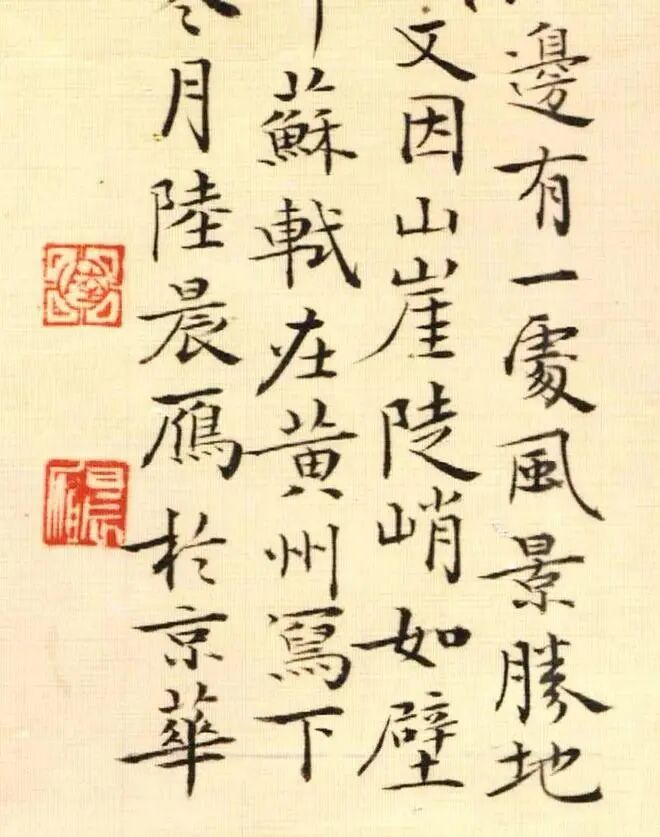 邊有一處風景勝地
文因山崖陡峭如壁
蘇軾在黄州寫下
月陸晨雁於京華